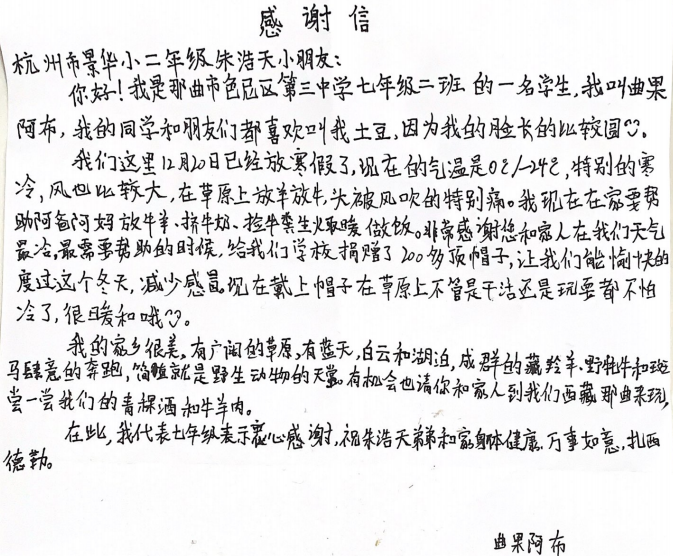 感谢信
杭州市景华小二年级朱浩天小朋友：
你好！我是那曲市色尼区第三中学七年级二班的一名学生，我叫曲果
阿布，我的同学和朋友们都喜欢叫我土豆，因为我的脸长的比较圆。
我们这里12月20日已经放寒假了，现在的气温是0℃/-24℃，特别的寒
冷，风也比较大，在草原上放羊放牛，头被风吹的特别痛。我现在在家要帮
助阿爸阿妈放牛羊、挤牛奶、捡牛粪生火取暖做饭。非常感谢您和家人在我们天气
最冷，最需要帮助的时候，给我们学校捐赠了200多顶帽子，让我们能愉快的
度过这个冬天，减少感冒。现在戴上帽子在草原上不管是干活还是玩耍都不怕
冷了，很暖和哦。
我的家乡很美，有广阔的草原，有蓝天，白云和湖泊，成群的藏羚羊、野牦牛和斑
马肆意的奔跑，简直就是野生动物的天堂。有机会也请你和家人到我们西藏那曲来玩，
尝一尝我们的青稞酒和牛羊肉。
在此，我代表七年级表示衷心感谢，祝朱浩天弟弟和家人身体健康，万事如意，扎西
德勒。
曲果阿布